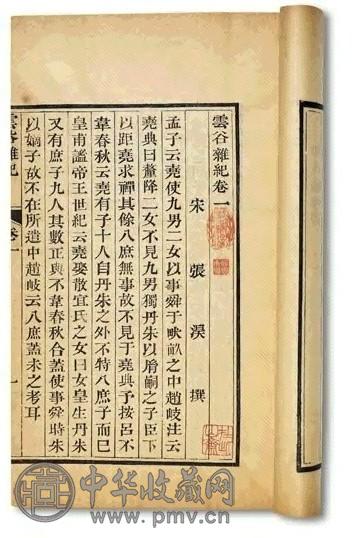 雲谷雜紀卷一
宋 張淏 撰
孟子云堯使九男二女以事舜于畎畝之中趙岐注云
堯典曰釐降二女不見九男獨丹朱以胤嗣之子臣下
以距堯求禪其餘八庶無事故不見于堯典予按呂不
韋春秋云堯有子十人自丹朱之外不特八庶子而已
皇甫謐帝王世紀云堯娶散宜氏之女曰女皇生丹朱
又有庶子九人其數正與不韋春秋合蓋使事舜時朱
以嫡子故不在所遣中趙岐云八庶蓋未之考耳
雲谷雜紀
卷一
一
中华收藏网
www.pmv.cn